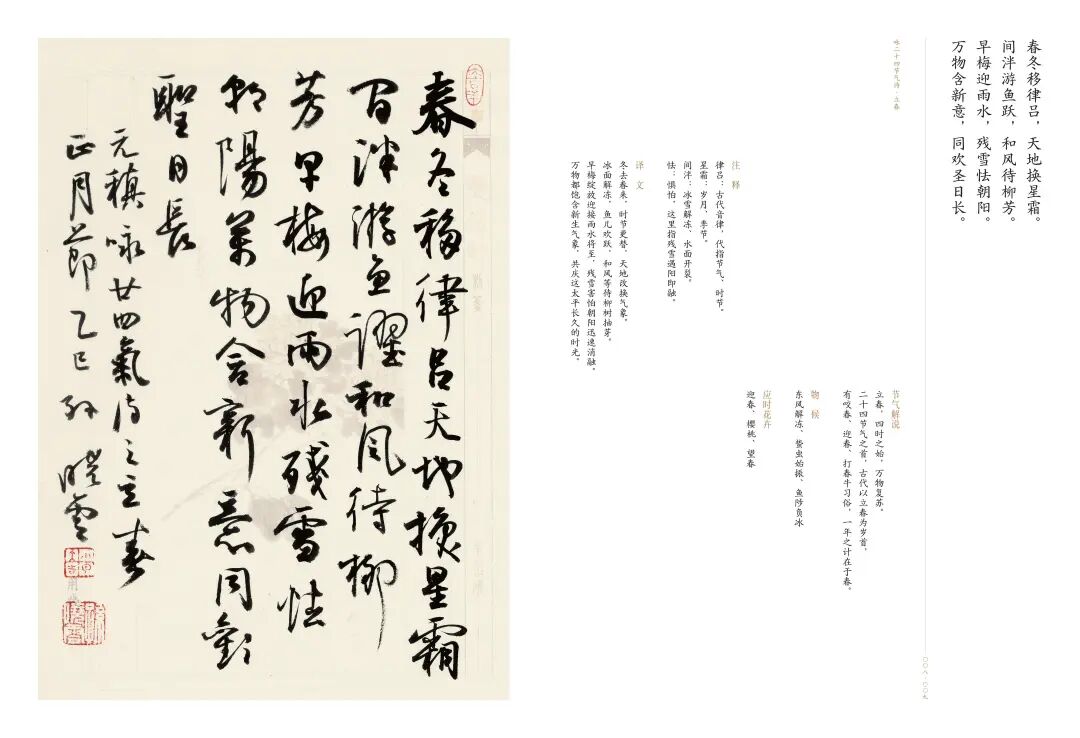 春冬移律吕，天地换星霜。
间泮游鱼跃，和风待柳芳。
早梅迎雨水，残雪怯朝阳。
万物含新意，同欢圣日长。
咏二十四节气诗·立春
〇〇八·〇〇九
节气解说
立春，四时之始，万物复苏。
二十四节气之首，古代以立春为岁首，
有咬春、迎春、打春牛习俗，一年之计在于春。
物候
东风解冻、蛰虫始振、鱼陟负冰
应时花卉
迎春、樱桃、望春
注释
律吕：古代音律，代指节气、时节。
星霜：岁月、季节。
间泮：冰雪解冻、水面开裂。
怯：惧怕，这里指残雪遇阳即融。
译文
冬去春来，时节更替，天地改换气象。
冰面解冻，鱼儿欢跃，和风等待柳树抽芽。
早梅绽放迎接雨水将至，残雪害怕朝阳迅速消融。
万物都饱含新生气象，共庆这太平长久的时光。
春冬移律吕天地換星霜
間泮游魚躍和風待柳
芳早梅迎雨水殘雪怯
朝陽萬物含新意同歡
聖日長
元稹咏廿四氣詩之立春
正月節乙巳孙曉雲